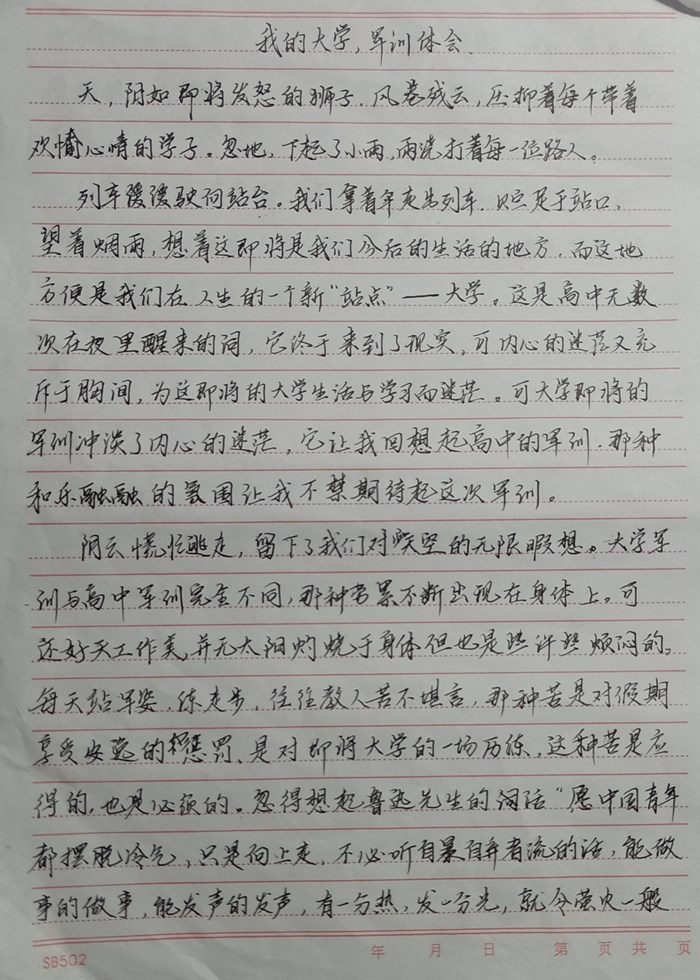 我的大学,军训体会.
天,阴如即将发怒的狮子.风卷残云,压抑着每个带着
欢愉心情的学子。忽地,下起了小雨,雨洗打着每一位路人。
列车缓缓驶向站台。我们拿着年走出列车.只足于站口,
望着烟雨,想着这即将是我们今后的生活的地方.而这地
方便是我们在人生的一个新"站点"——大学。这是高中无数
次在夜里醒来的词,它终于来到了现实,可内心的迷茫又充
斥于胸间,为这即将的大学生活与学习而迷茫。可大学即将的
军训冲淡了内心的迷茫,它让我回想起高中的军训.那种
和乐融融的氛围让我不禁期待起这次军训。
阴云慌忙逃走,留下了我们对天空的无限暇想。大学军
训与高中军训完全不同,那种苦累不断出现在身体上。可
还好天工作美,并无太阳灼烧于身体但也是些许些烦闷的。
每天站军姿.练走步,往往教人苦不堪言,那种苦是对假期
享受安逸的惩罚、是对即将大学的一场历练,这种苦是应
得的,也是必须的。忽得想起鲁迅先生的词话"愿中国青年
都摆脱冷气,只是向上走,不必听自暴自弃者流的话,能做
事的做事,能发声的发声,有一分热,发一分光,就令萤火一般
SB502
年 月 日 第 页 共 页